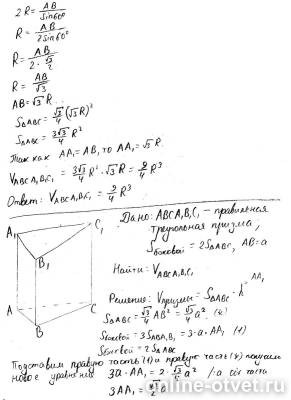 2R = AB/sin60°
R = AB/2sin60°
R = AB/(2·√3/2)
R = AB/√3
AB = √3 R
S△ABC = √3/4 (√3R)²
S△ABC = 3√3/4 R²
Так как AA₁ = AB, то AA₁ = √3 R.
VABCA₁B₁C₁ = 3√3/4 R² · √3R = 9/4 R³
Ответ: VABCA₁B₁C₁ = 9/4 R³
Дано: ABCA₁B₁C₁ – правильная
треугольная призма,
Sбоковой = 2S△ABC, AB=a
Найти: VABCA₁B₁C₁
Решение: Vпризмы = S△ABC · h
AA₁
S△ABC = √3/4 AB² = √3/4 a² (*)
Sбоковой = 3S△ABB₁A₁ = 3·a·AA₁ (1)
Sбоковой = 2S△ABC
Подставим правую часть (1) и правую часть (*) получим
новое уравнение 3a·AA₁ = 2·√3/4 a² /:a обе части
3AA₁ = √3/2 a
A₁
C₁
B₁
A
C
B
ine-otvet.ru